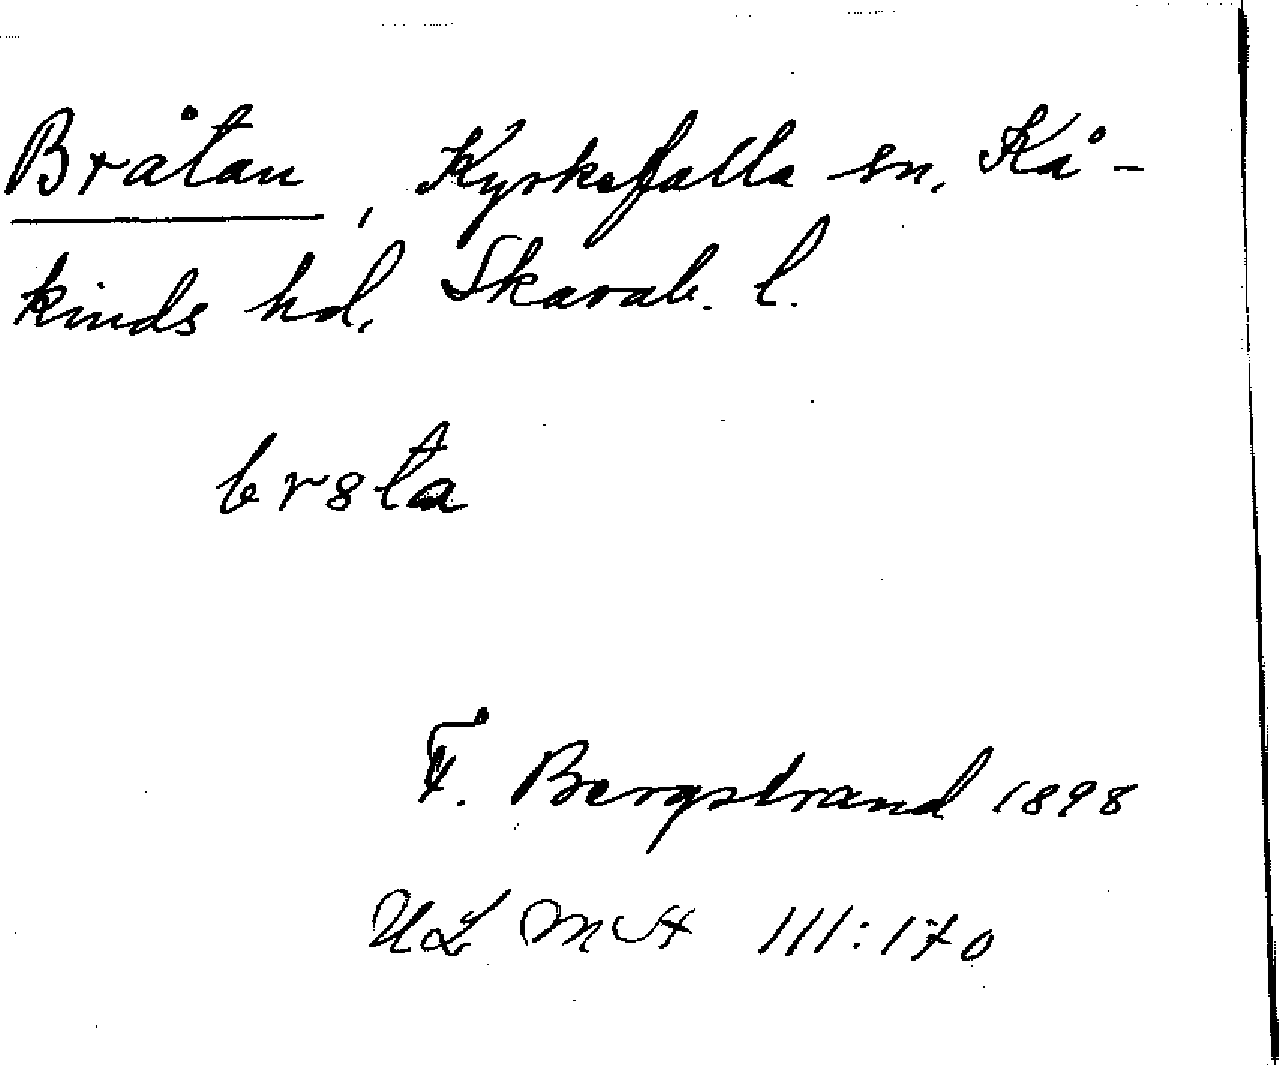 Bråtan, Kyrkefalla sn. Kå-
kinds hd. Skarab. l.
br8ta
F. Bergstrand 1898
ULMA 111:170